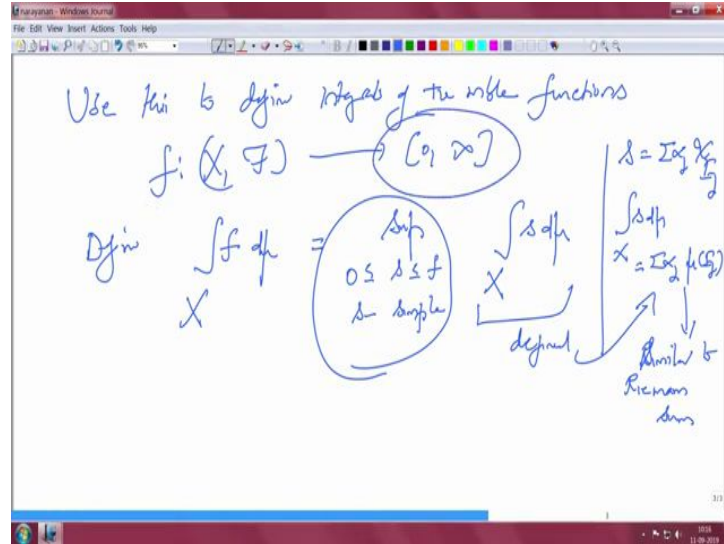 narayanan - Windows Journal
File Edit View Insert Actions Tools Help
Use this to define integrals of +ve mble functions
f: (X, F) → [0, ∞]
Define ∫_X f dμ = sup_{0 ≤ s ≤ f, s - simple} ∫_X s dμ
defined
s = Σαⱼ χ_{Eⱼ}
∫_X s dμ
= Σαⱼ μ(Eⱼ)
Similar to
Riemann
sums
3/3
10:16
11-09-2019